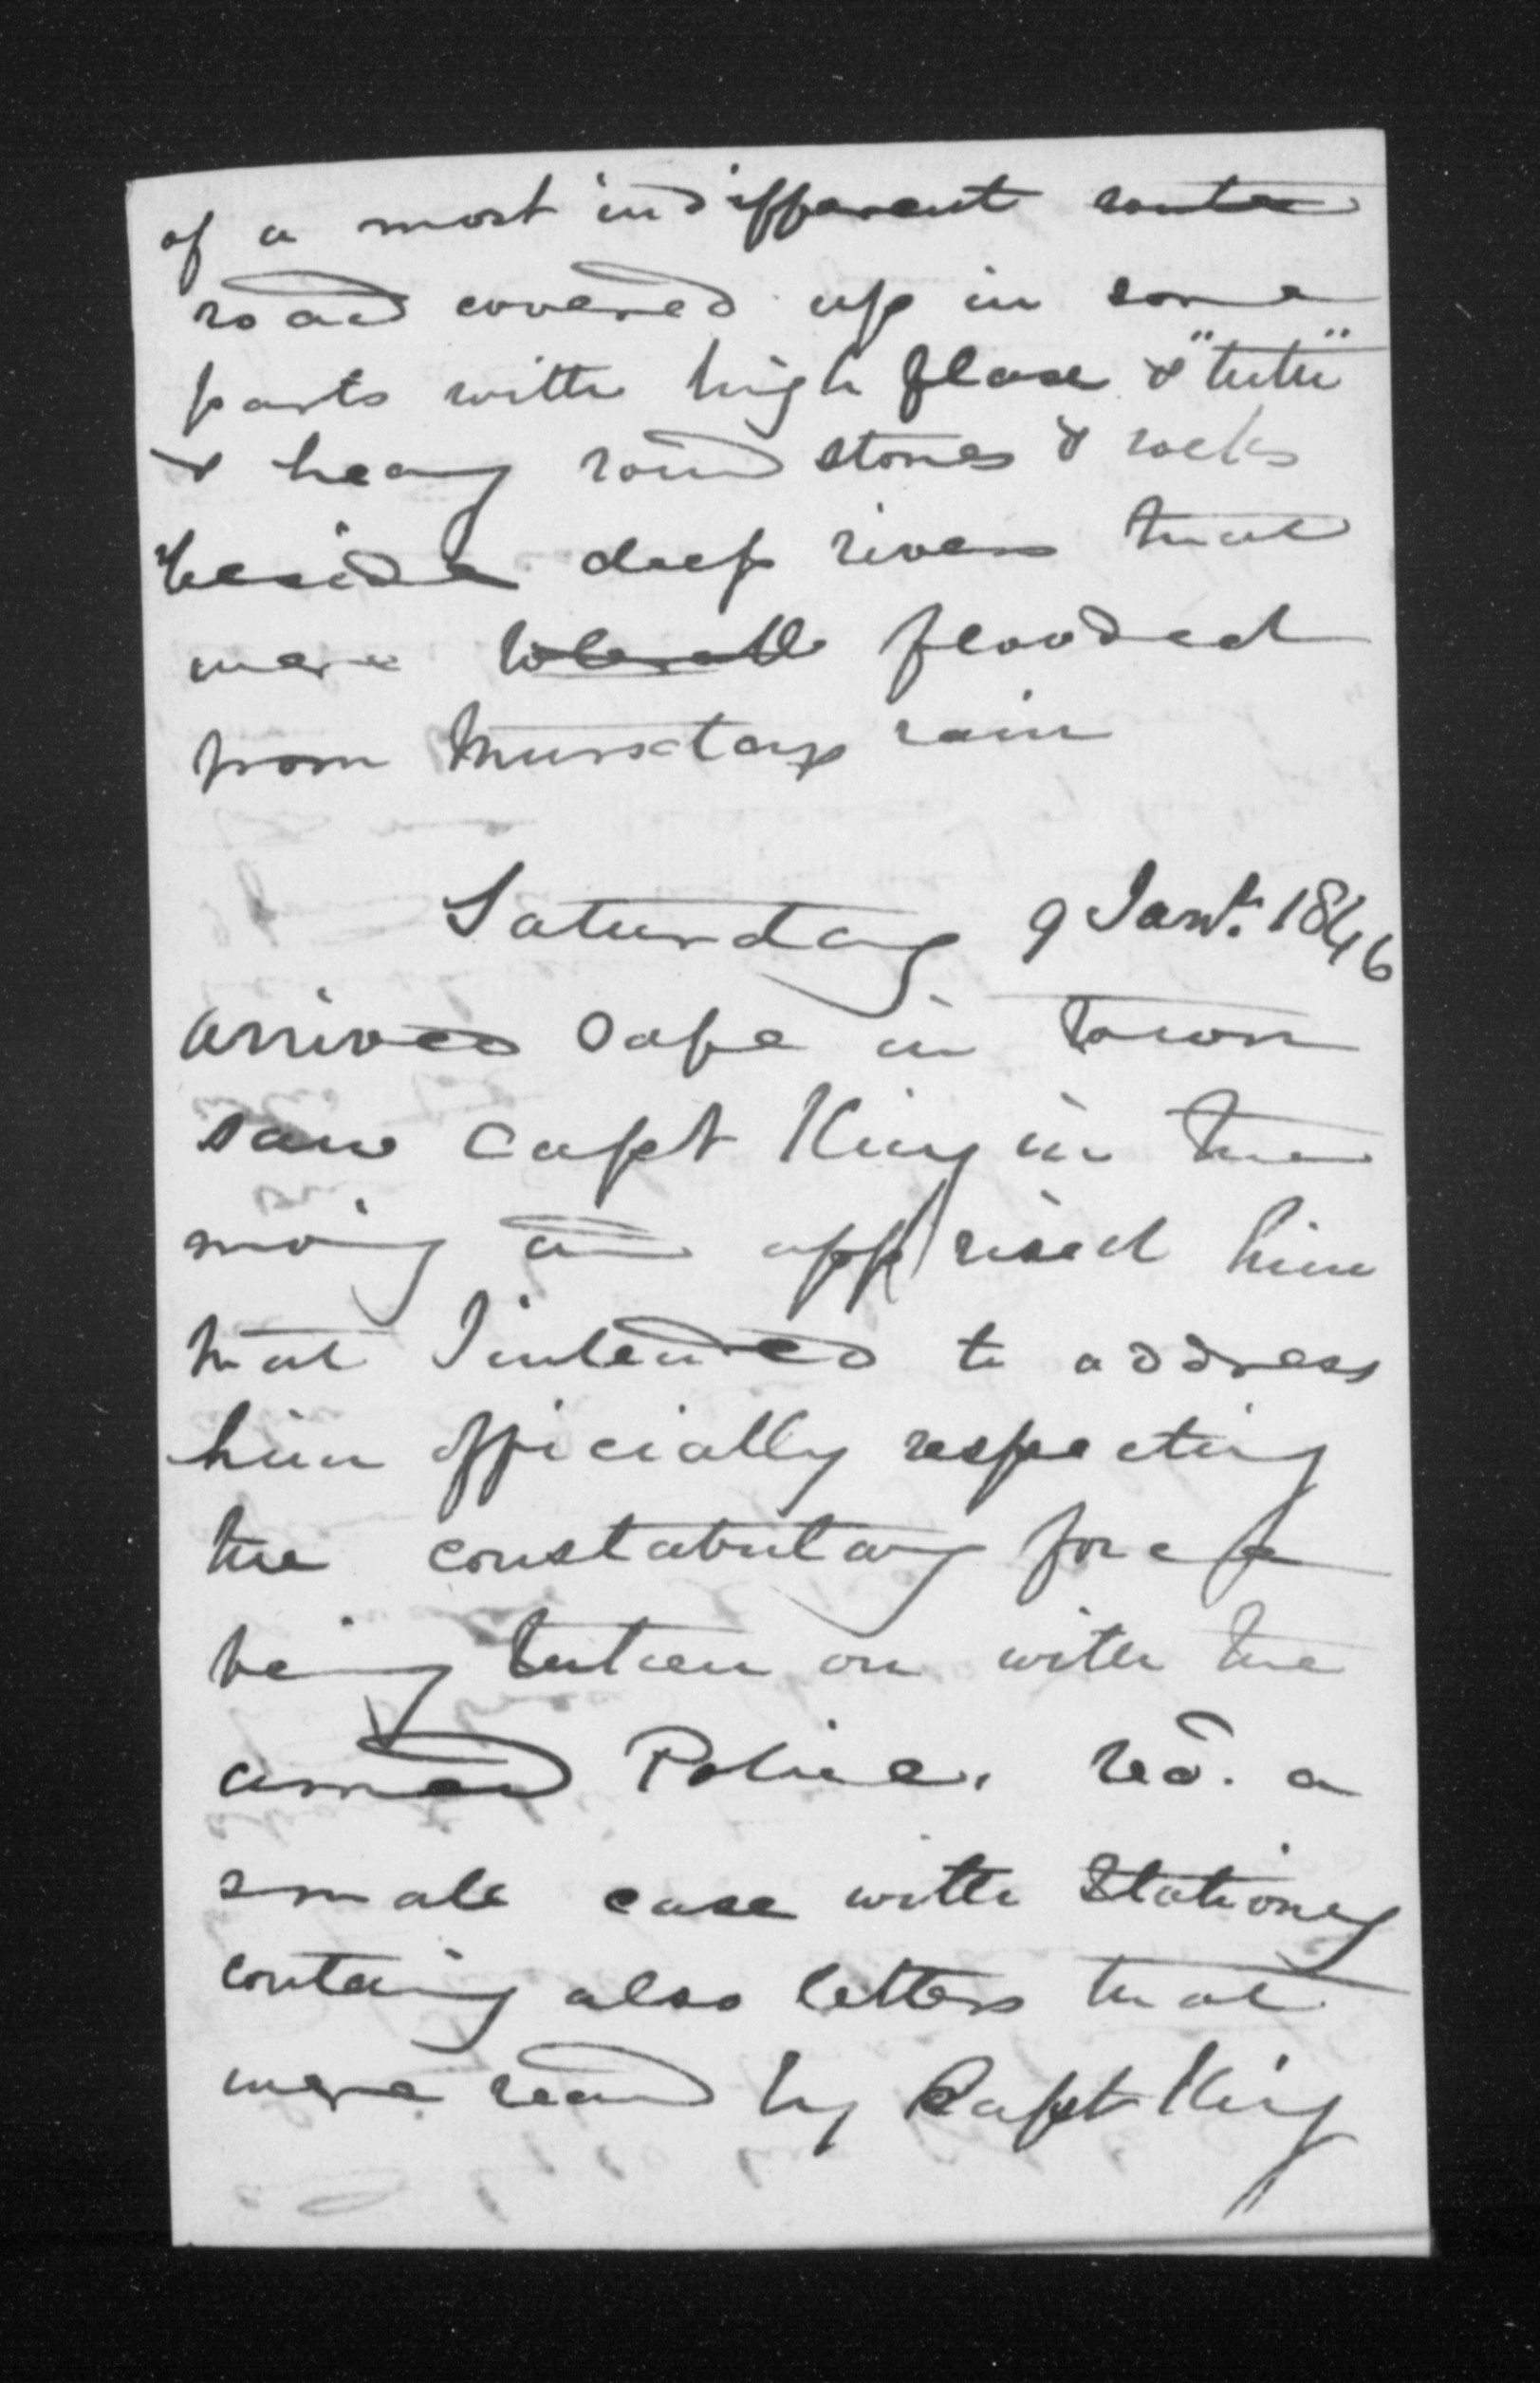 of a most indifferent route
road covered up in some
parts with high flax & "tutu"
& heavy round stones & rocks
beside deep rivers that
were flooded
from Thursdays rain
Saturday 9 Jany. 1846
arrived safe in town
saw Capt King in the
moing and apprised him
that I intended to address
him officially respecting
the constabulary force
being taken on with the
armed Police. recd. a
small case with Stationey
containg also letters that
were read by Capt King